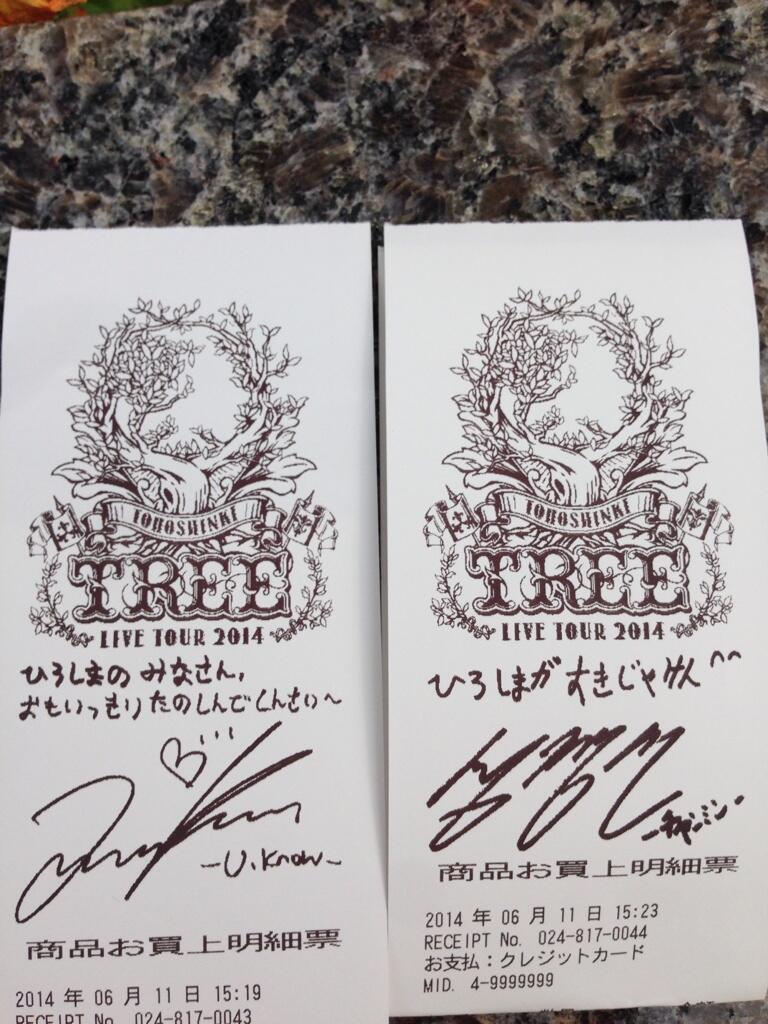 TOHOSHINKI
TREE
LIVE TOUR 2014
ひろしまの みなさん、
おもいっきりたのしんでくんさい〜
-U.Know-
商品お買上明細票
2014 年 06 月 11 日 15:19
RECEIPT No. 024-817-0043
TOHOSHINKI
TREE
LIVE TOUR 2014
ひろしまが すきじゃけん ^^
-チャンミン-
商品お買上明細票
2014 年 06 月 11 日 15:23
RECEIPT No. 024-817-0044
お支払：クレジットカード
MID. 4-9999999